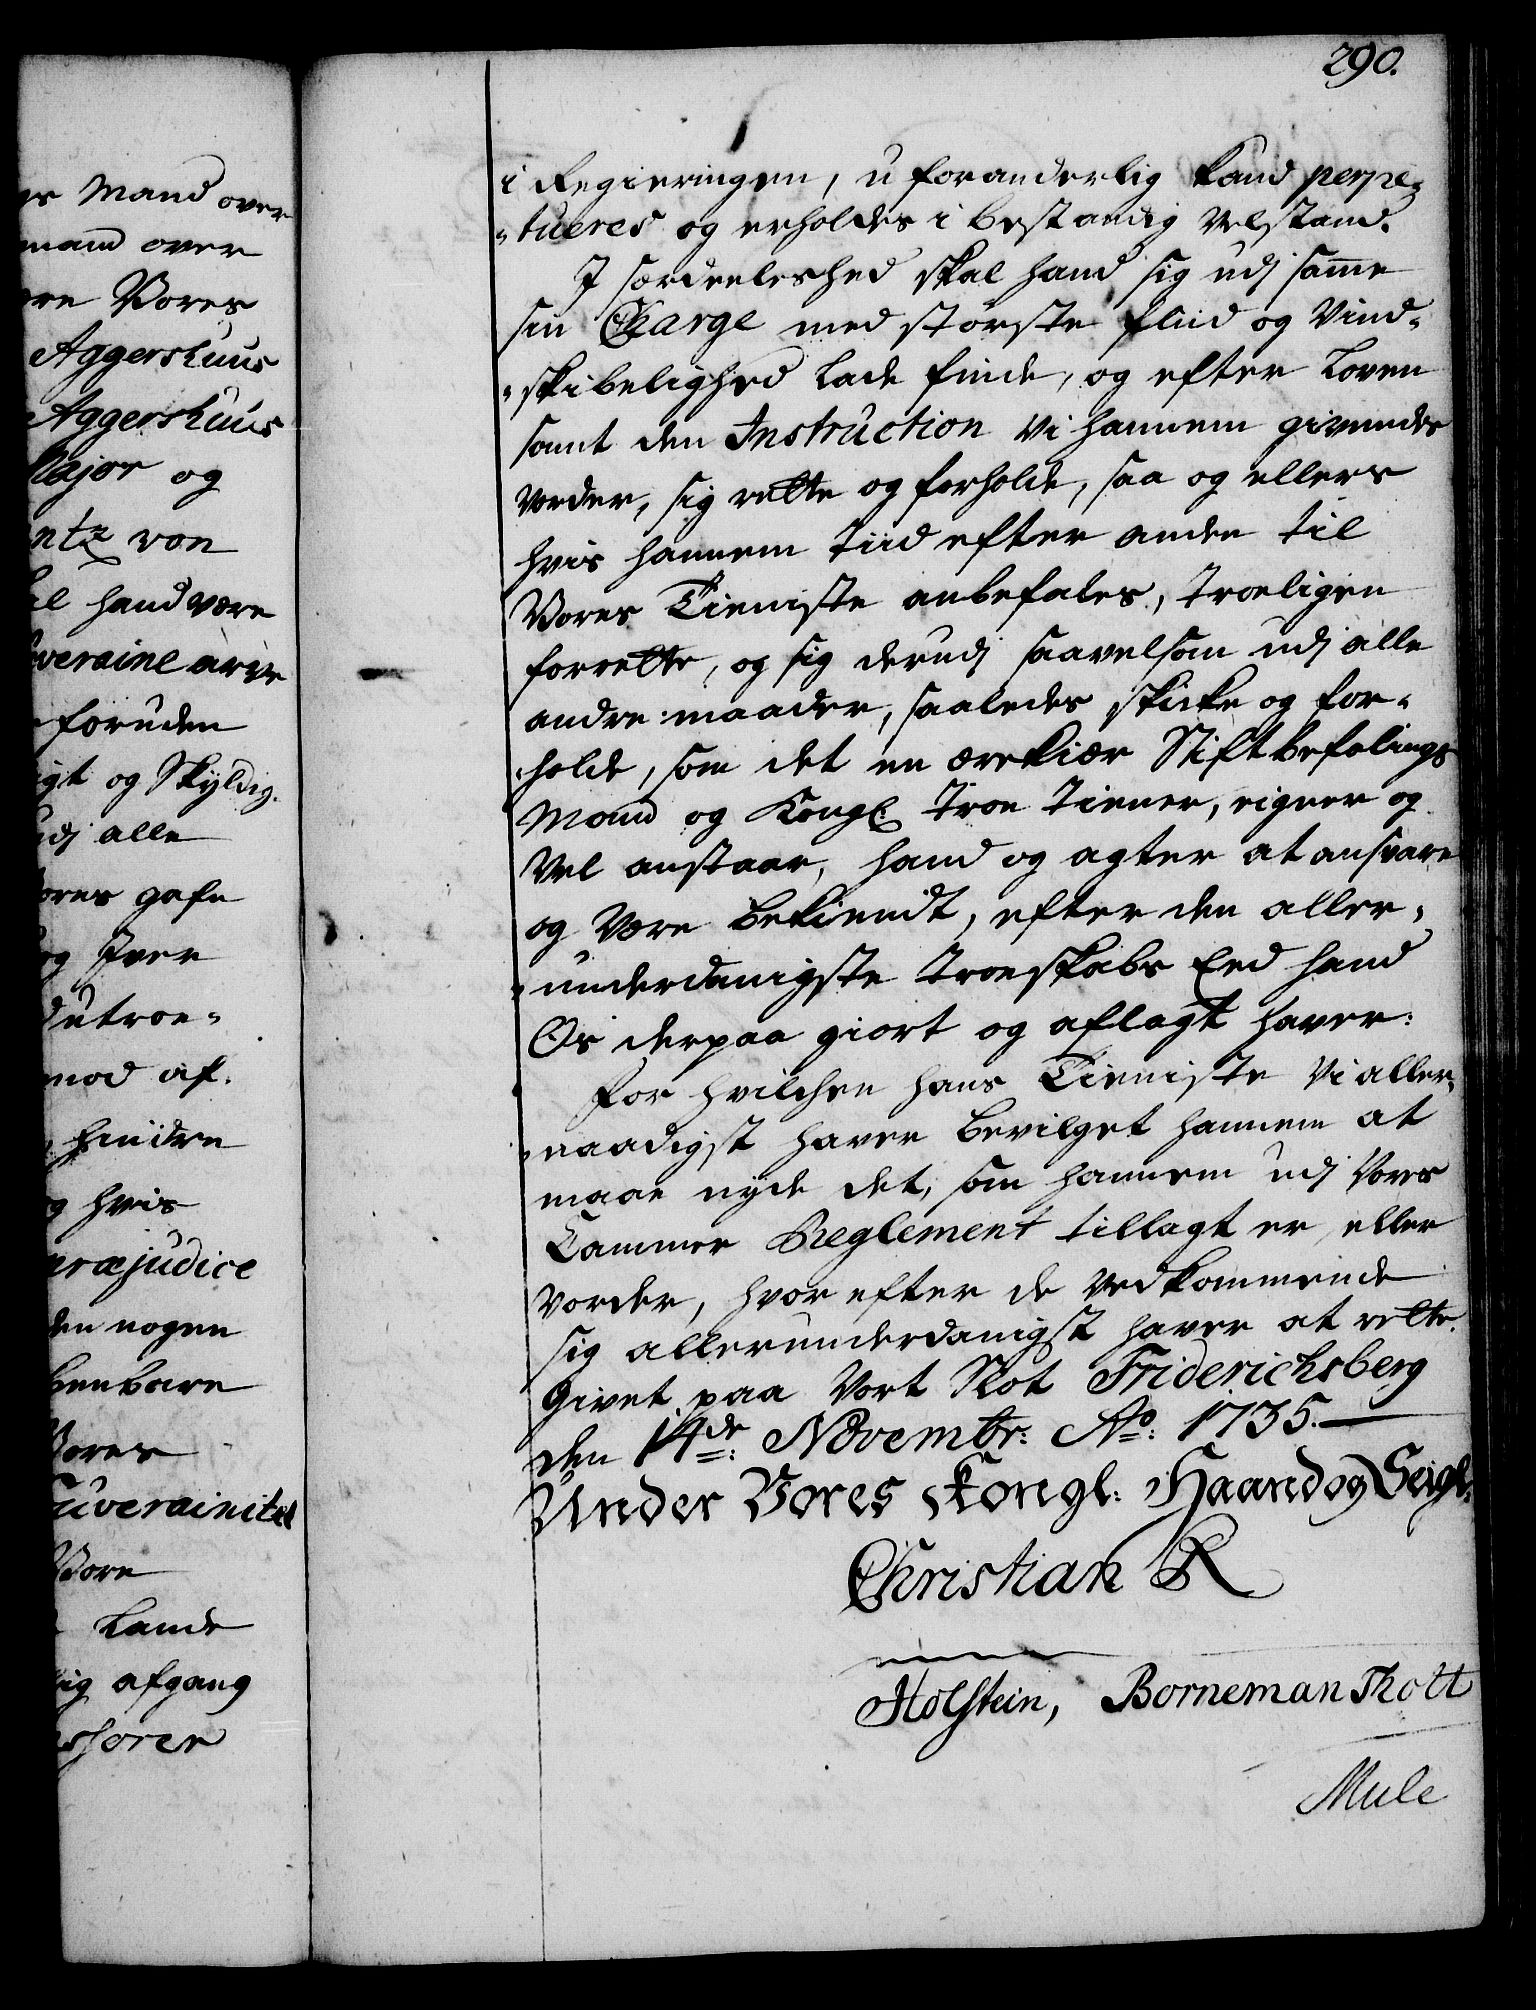 290.
er Mand over
mand over
ere Vores
Aggershuus
Aggershuus
Major og
ntz von
al hand være
uveraine arve
foruden
igt og Skyldig.
udj alle
ores gafn
og Iver
utroe-
mod af.
hindre
og hvis
præjudice
den nogen
benbare
Vores
Suverainitet
Vore
Lande
lig afgang
shorer
i Regieringen, uforanderlig kand perpe-
-tueres og erholdes i bestandig Velstand.
I særdeeleshed skal hand sig udj samme
sin Charge med største fliid og Vind-
-skibelighed lade finde, og efter Loven
samt den Instruction Vi hannem givendes
vorder, sig rette og forholde, saa og ellers
hvis hannem Tiid efter anden til
Vores Tieniste anbefales, troeligen
forrette, og sig derudj saavelsom udj alle
andre maader, saaledes skicke og for-
-holde, som det en ærekiær Stiftbefalings
Mand og Kongl. Troe Tiener, eigner og
Vel anstaar, hand og agter at ansvare
og Være bekiendt, efter den aller-
-underdanigste Troeskabs Eed hand
Os derpaa giort og aflagt haver:
For hvilchen hans Tieniste Vi aller-
-naadigst haver bevilget hannem at
maae nyde det, som hannem udj Vores
Cammer Reglement tillagt er, eller
vorder, hvorefter de Vedkommende
sig allerunderdanigst haver at rette.
Givet paa Vort Slot Friderichsberg
den 14de: Novembr: Ao: 1735.
Under Vores Kongl: Haand og Seigl:
Christian R
Holstein, Borneman Thott
Mule